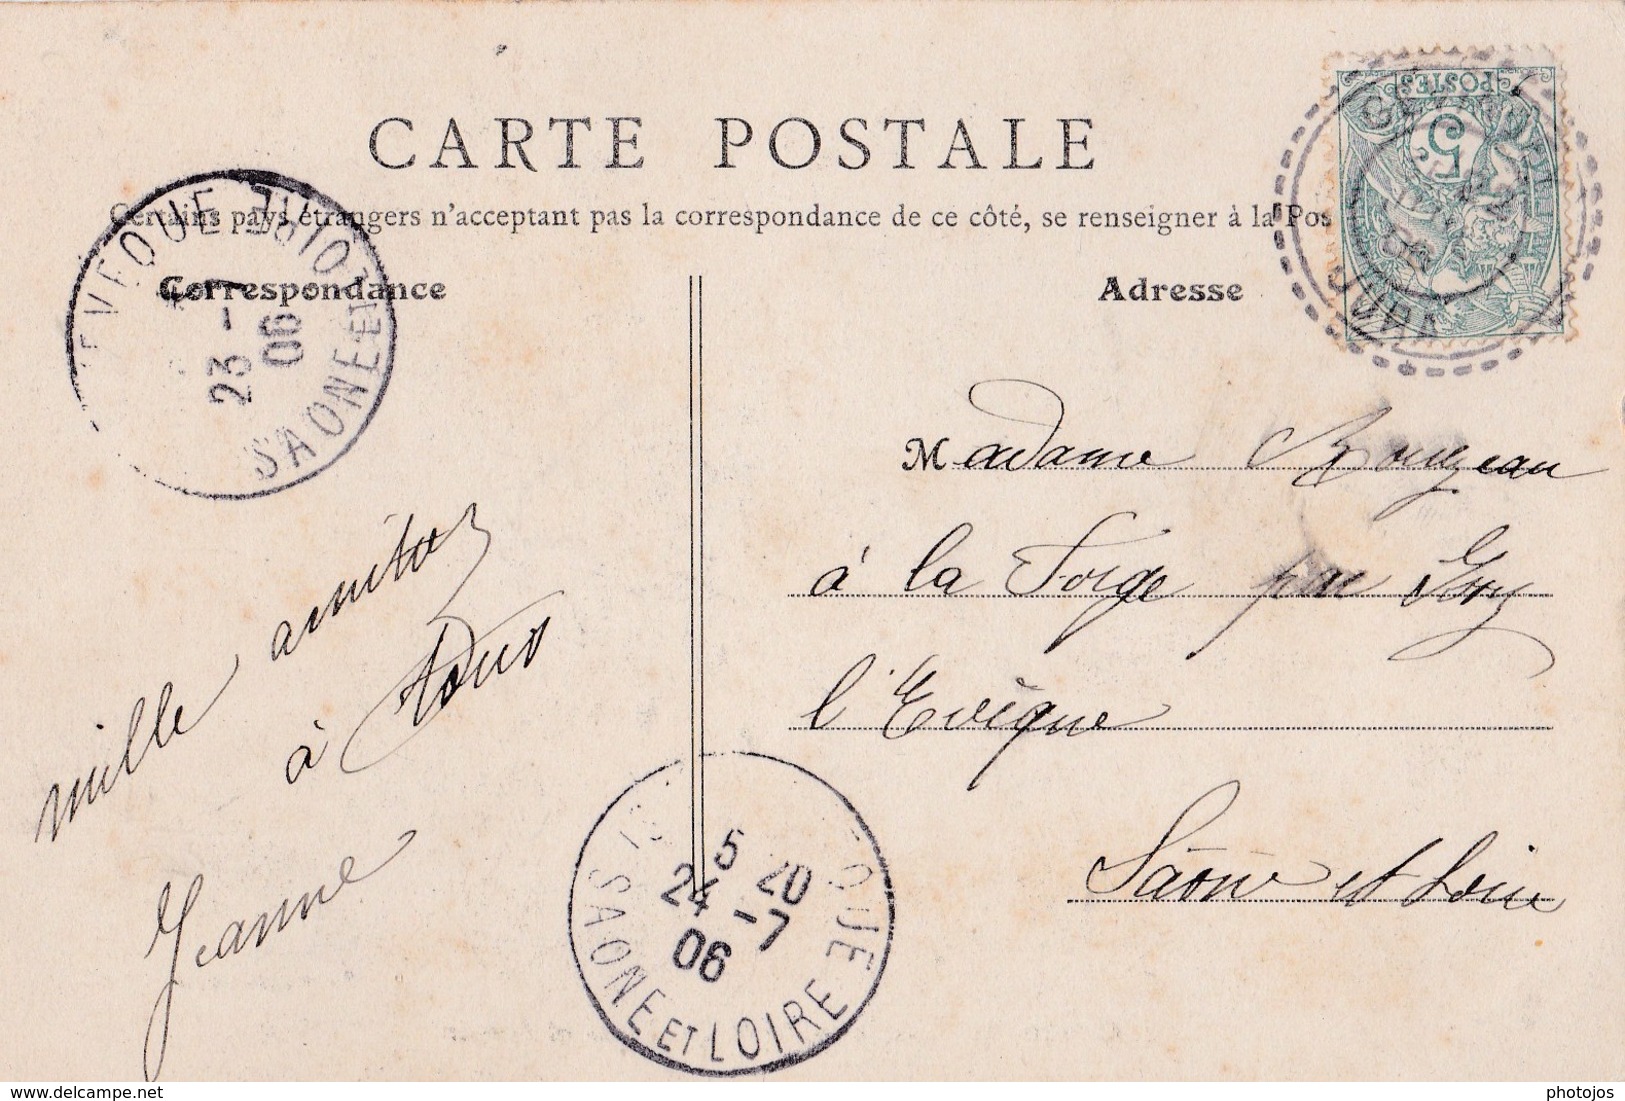 CARTE POSTALE
Certains pays étrangers n'acceptent pas la correspondance de ce côté, se renseigner à la Pos
Correspondance
Adresse
POSTES
5
JURA
EVEQUE
SAONE ET
23 - 7
06
Madame Rouzeau
à la Forge par Issy
l'Evèque
Sâone et Loire
mille amitiés
à tous
Jeanne
5 20
24 - 7
06
QUE
SAONE ET LOIRE
www.delcampe.net
photojos